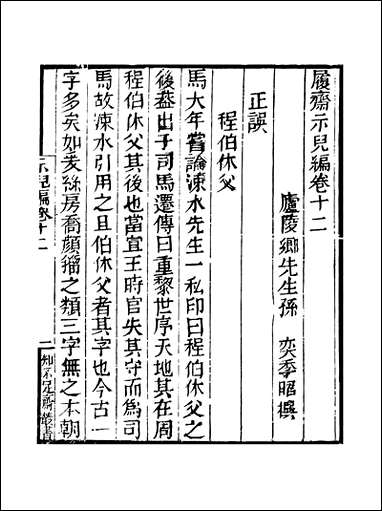 履齋示兒編卷十二
廬陵鄉先生孫 奕季昭撰
正誤
程伯休父
馬大年嘗論涑水先生一私印曰程伯休父之
後葢出于司馬遷傳曰重黎世序天地其在周
程伯休父其後也當宣王時官失其守而爲司
馬故涑水引用之且伯休父者其字也今古一
字多矣如爰絲房喬顏籀之類三字無之本朝
示兒編卷十二
一
知不足齋叢書